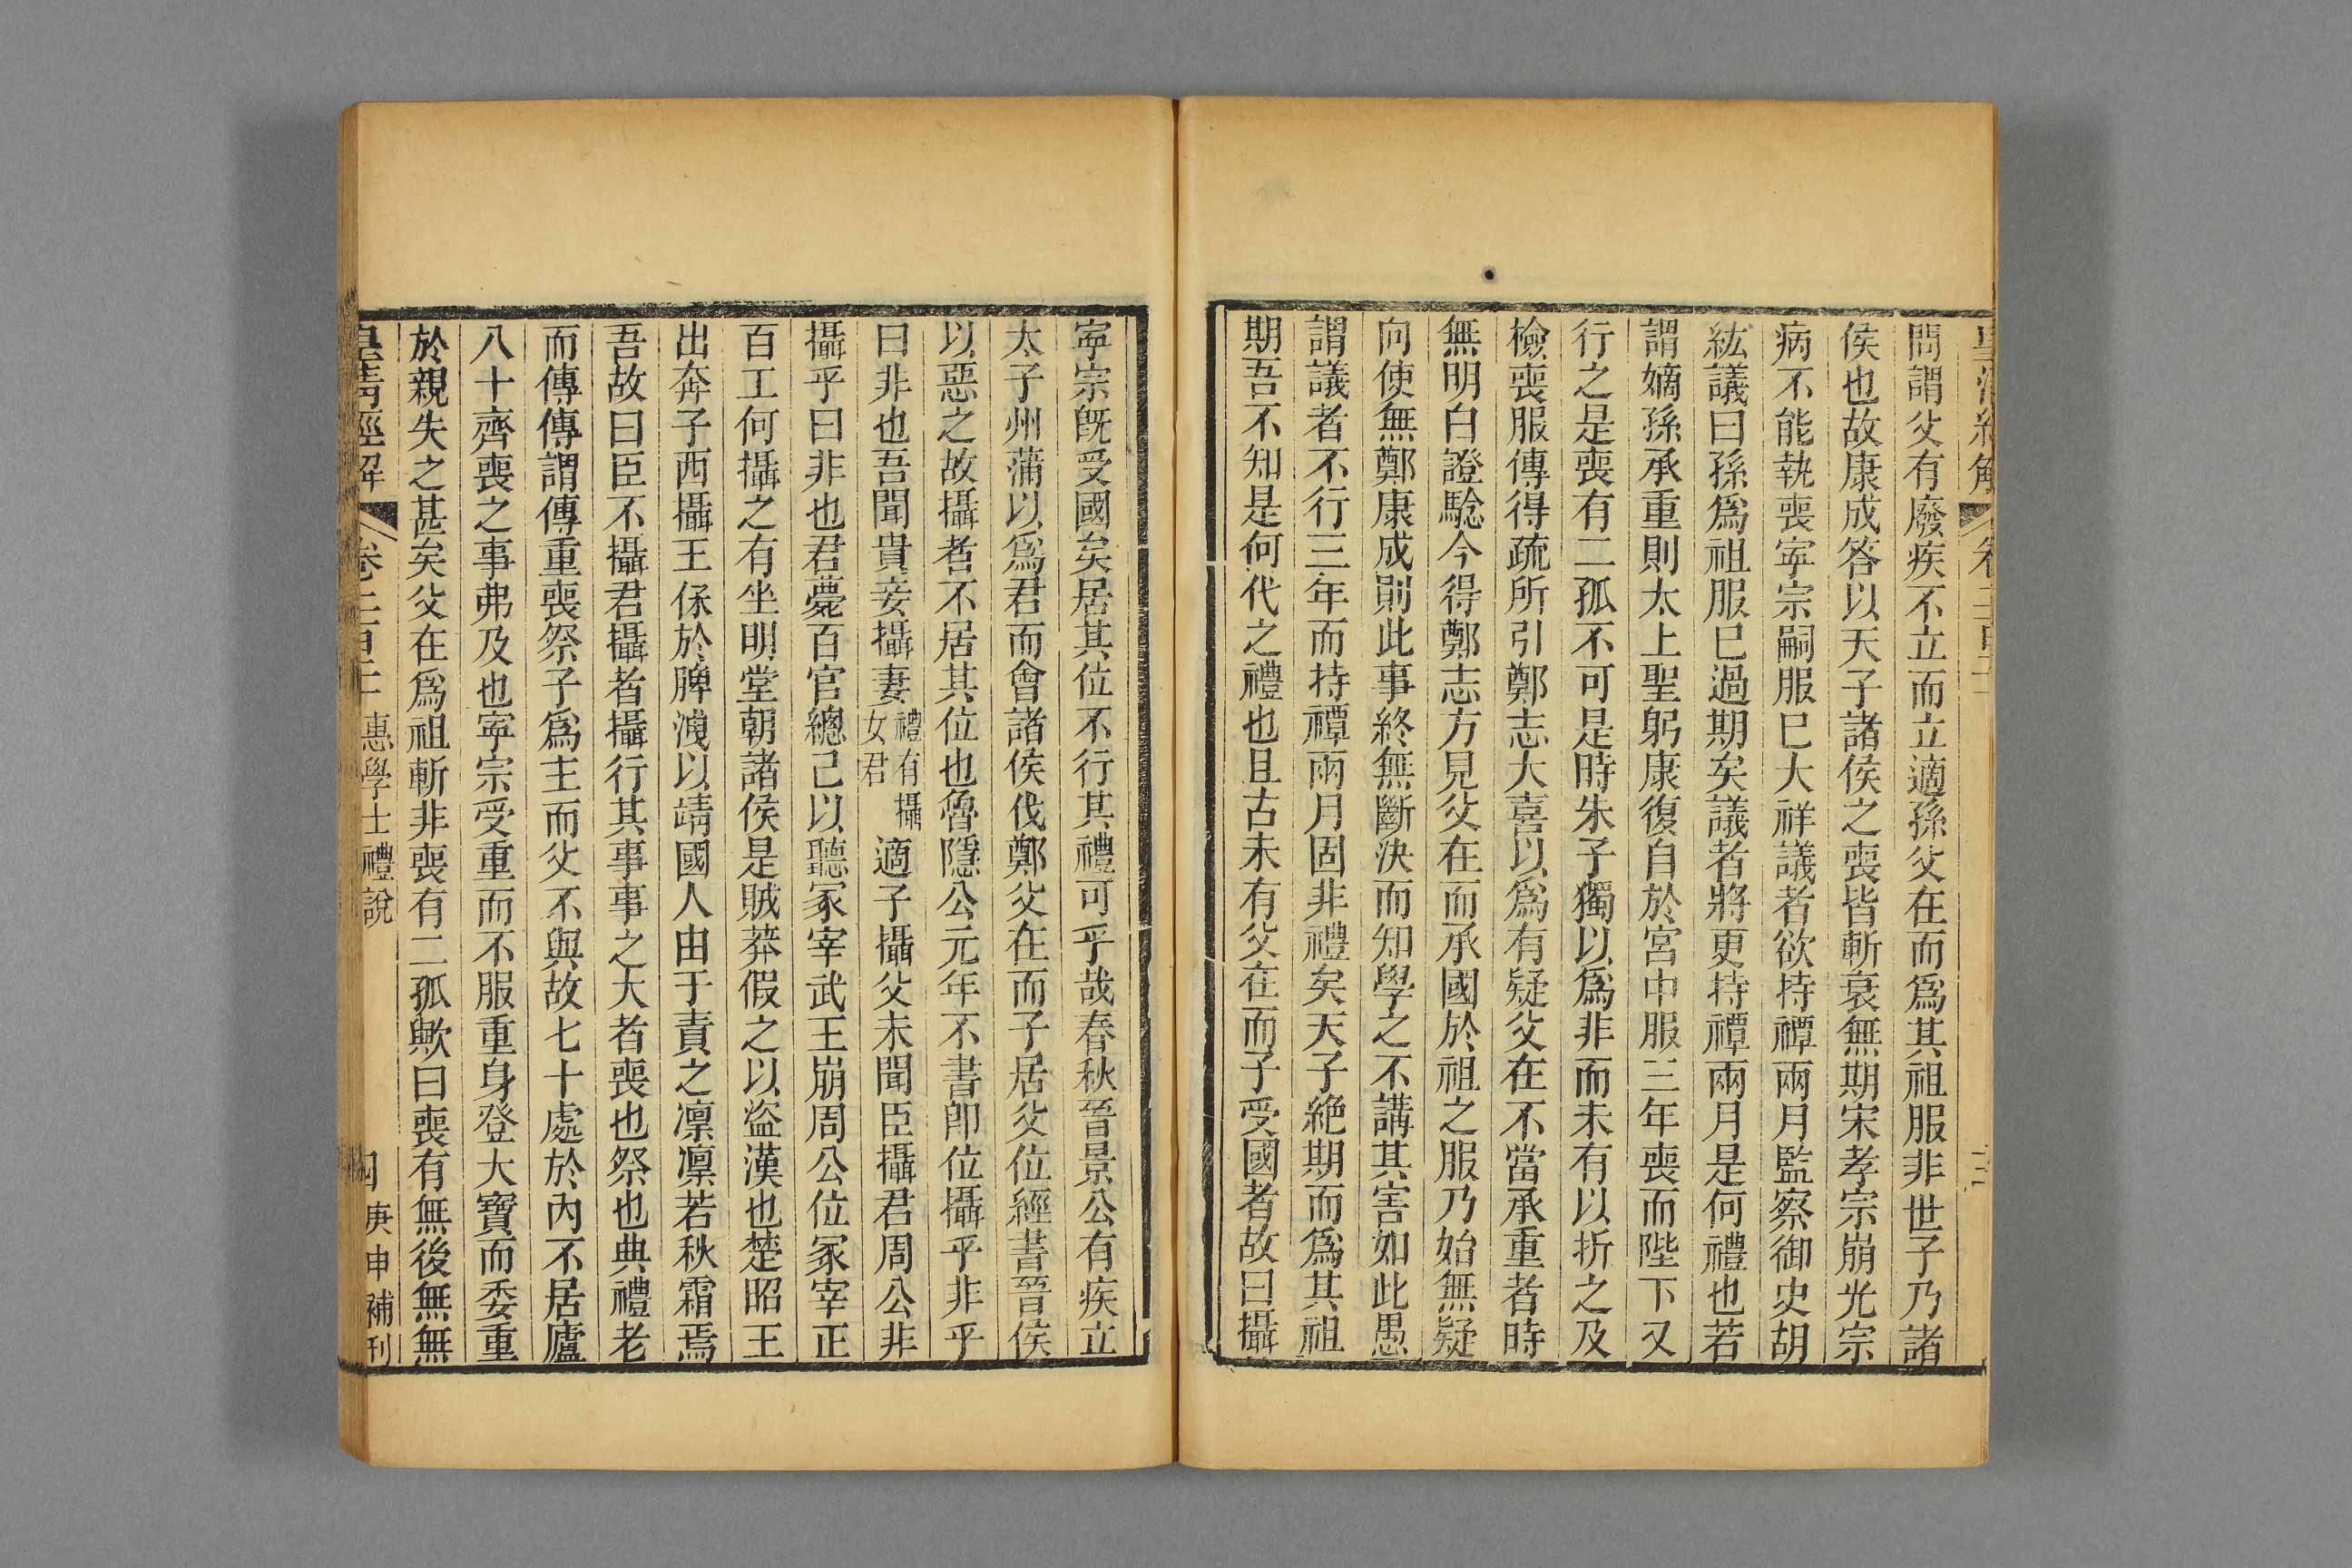 問謂父有廢疾不立而立適孫父在而爲其祖服非世子乃諸
侯也故康成答以天子諸侯之喪皆斬衰無期宋孝宗崩光宗
病不能執喪寧宗嗣服巳大祥議者欲持禫兩月監察御史胡
紘議曰孫爲祖服巳過期矣議者將更持禫兩月是何禮也若
謂嫡孫承重則太上聖躬康復自於宮中服三年喪而陛下又
行之是喪有二孤不可是時朱子獨以爲非而未有以折之及
檢喪服傳得疏所引鄭志大喜以爲有疑父在不當承重者時
無明白證驗今得鄭志方見父在而承國於祖之服乃始無疑
向使無鄭康成則此事終無斷決而知學之不講其害如此愚
謂議者不行三年而持禫兩月固非禮矣天子絶期而爲其祖
期吾不知是何代之禮也且古未有父在而子受國者故曰攝
寧宗旣受國矣居其位不行其禮可乎哉春秋晉景公有疾立
太子州蒲以爲君而會諸侯伐鄭父在而子居父位經書晉侯
以惡之故攝者不居其位也魯隱公元年不書卽位攝乎非乎
曰非也吾聞貴妾攝妻禮有攝女君適子攝父未聞臣攝君周公非
攝乎曰非也君薨百官總己以聽冢宰武王崩周公位冢宰正
百工何攝之有坐明堂朝諸侯是賊莽假之以盜漢也楚昭王
出奔子西攝王保於脾洩以靖國人由于責之凛凛若秋霜焉
吾故曰臣不攝君攝者攝行其事事之大者喪也祭也典禮老
而傳傳謂傳重喪祭子爲主而父不與故七十處於內不居廬
八十齊喪之事弗及也寧宗受重而不服重身登大寶而委重
於親失之甚矣父在爲祖斬非喪有二孤歟曰喪有無後無無
皇清經解 卷二百十 惠學士禮說 四 庚申補刊